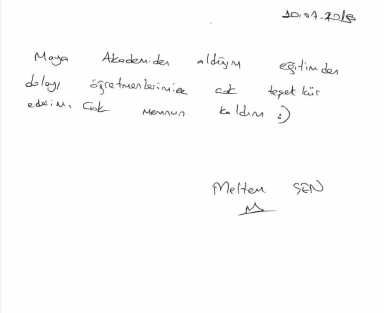 10.01.2018
Maya Akademiden aldığım eğitimden
dolayı öğretmenlerimize çok teşekkür
ederim. Çok memnun kaldım :)
Meltem ŞEN